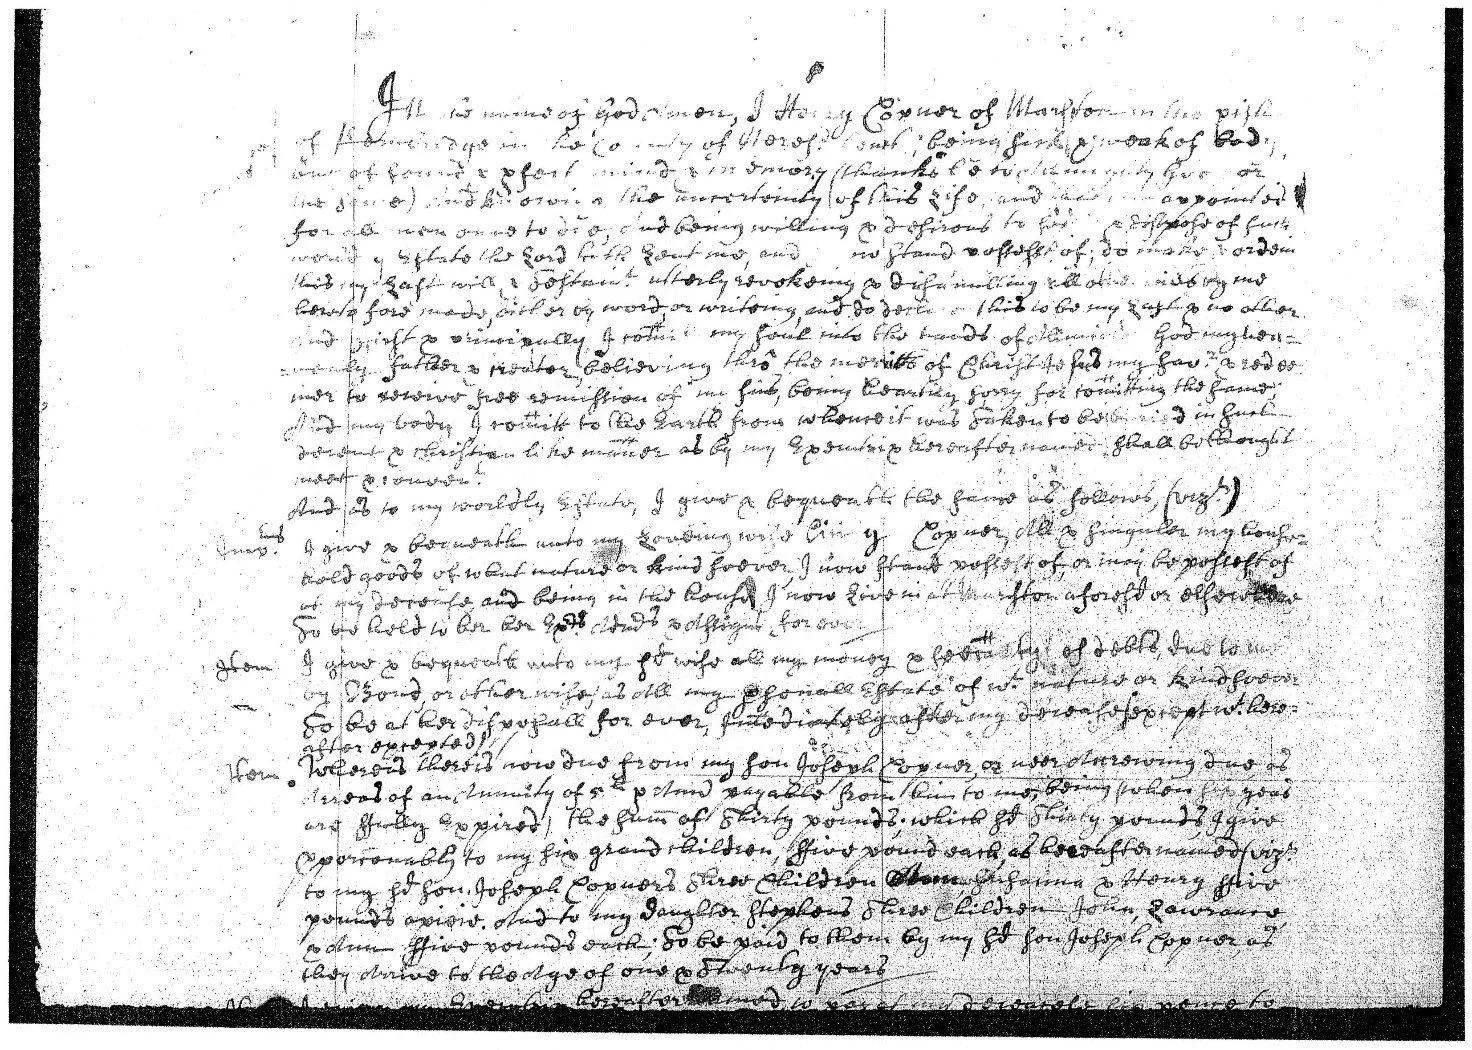 In name of God Amen, I Henry Copner of Marston in the pish
of Pembridge in the County of Heref: being sick & weak of body,
but of sound & pfect mind & memory (thanks be to Almighty God for
the same) And knowing the uncertainty of this Life, and appointed
for all men once to die, And being willing & desirous to & dispose of such
world y Estate the Lord hath Lent me, and now stand possesst of, do make & ordein
this my Last will & Testamt. utterly revokeing & disanulling all other by me
heretofore made, either by word, or writeing, and do declare this to be my Last & no other
And First & principally I comitt my soul into the hands of Almighty God my hea=
=venly father & creator, believing thro the meritts of Christ Jesus my savr. & redee
mer to receive free remission of my sins, being heartily sorry for comitting the same;
And my body I comitt to the Earth from whence it was Taken to be buried in such
decent & christian like maner as by my Executrix hereafter named shall be thought
meet & conven:t
And as to my worldly Estate, I give & bequeath the same as follows, (vizt.)
Imp:mis I give & bequeath unto my Loveing wife Copner, All & singuler my house=
hold goods of what nature or kind soever, I now stand possesst of, or may be possesst of
at my decease, and being in the house I now Live in at Marston aforesd or elsewhere
To be held to her her Exrs. Admrs & Assigns for ever
Item I give & bequeath unto my sd wife all my money & specialtys of debts, due to me
by Bond, or otherwise, as All my psonall Estate of wt. nature or kind soever
To be at her disposall for ever, Imediately after my decease (except wt. here=
after excepted)
Item Whereas there is now due from my son Joseph Copner, or neer Accrewing due as
Arreas of an Anuity of 5ll p Anum payable from him to me, being (when years
are ffully Expired) the sum of Thirty pounds; which sd Thirty pounds I give
& porconably to my six grand children, ffive pound each, as hereafter named (vizt.
to my sd son Joseph Copners Three Children Anne, Susanna & Henry ffive
pounds apiece. And to my daughter Stephens Three Children John, Lawrance
& Ann ffive pounds each; To be paid to them by my sd son Joseph Copner, as
they Arrive to the Age of one & Twenty years
my Executrix hereafter named, to pay at my decease six pence to